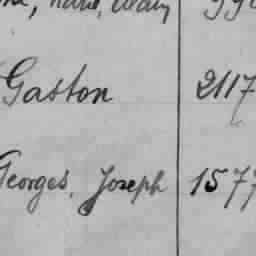 Gaston 2117
Georges, Joseph 1577